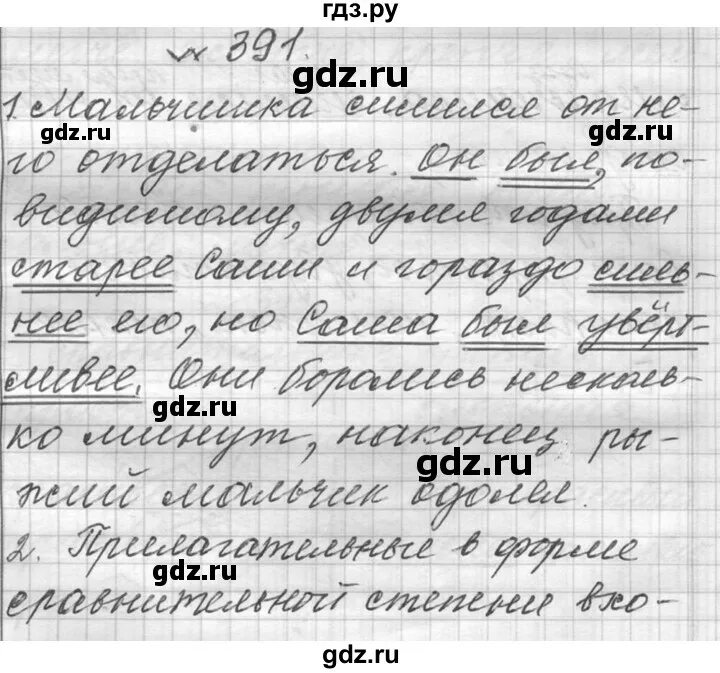 гдз.ру
№ 391.
gdz.ru
1. Мальчишка силился от не-
gdz.ru gdz.ru
го отделаться. Он был, по-
видимому, двумя годами
gdz.ru
старее Саши и гораздо силь-
нее его, но Саша был увёрт-
ливее. Они боролись несколь-
gdz.ru
ко минут, наконец ры-
gdz.ru
жий мальчик одолел.
2. Прилагательные в форме
gdz.ru
сравнительной степени вхо-
gdz.ru
gdz.ru